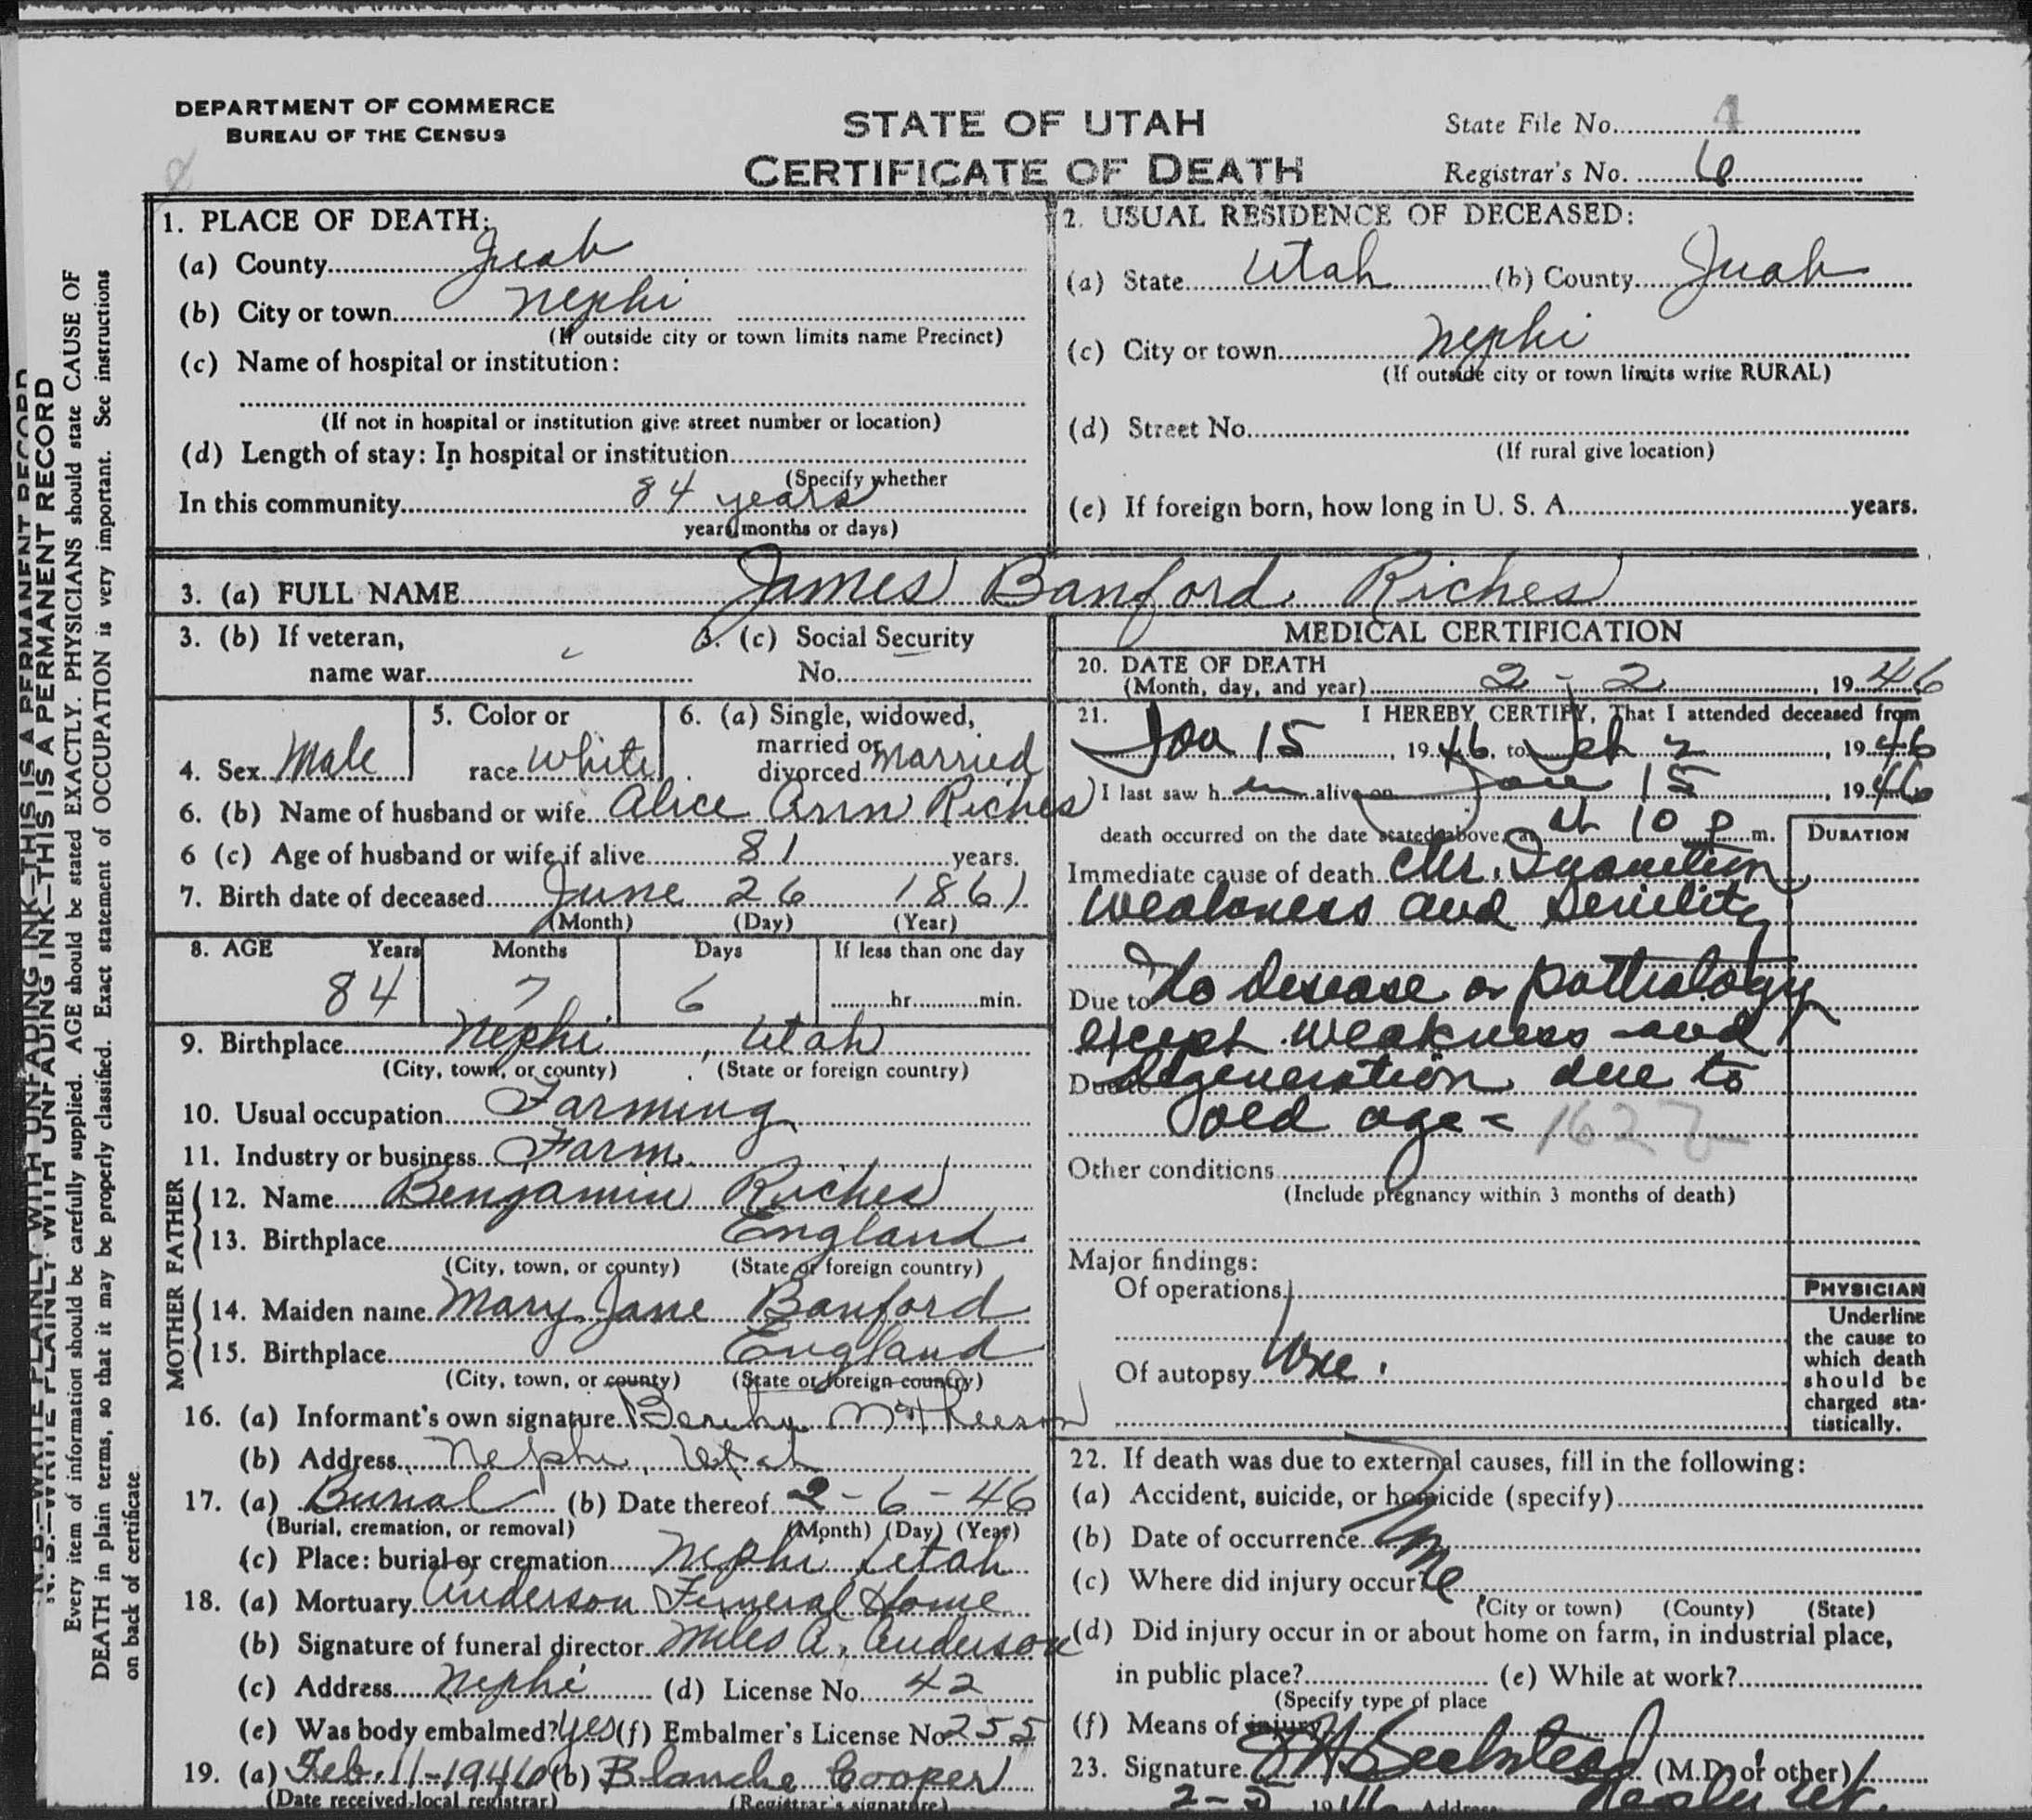 DEPARTMENT OF COMMERCE
BUREAU OF THE CENSUS
STATE OF UTAH
CERTIFICATE OF DEATH
State File No.
Registrar's No. 6
N. B.—WRITE PLAINLY WITH UNFADING INK—THIS IS A PERMANENT RECORD
N. B.—WRITE PLAINLY WITH UNFADING INK—THIS IS A PERMANENT RECORD
Every item of information should be carefully supplied. AGE should be stated EXACTLY. PHYSICIANS should state CAUSE OF
DEATH in plain terms, so that it may be properly classified. Exact statement of OCCUPATION is very important. See instructions
on back of certificate
1. PLACE OF DEATH:
(a) County Juab
(b) City or town Nephi
(If outside city or town limits name Precinct)
(c) Name of hospital or institution:
(If not in hospital or institution give street number or location)
(d) Length of stay: In hospital or institution
(Specify whether
In this community 84 years
years, months or days)
2. USUAL RESIDENCE OF DECEASED:
(a) State Utah (b) County Juab
(c) City or town Nephi
(If outside city or town limits write RURAL)
(d) Street No.
(If rural give location)
(e) If foreign born, how long in U. S. A. years.
3. (a) FULL NAME James Banford Riches
3. (b) If veteran,
name war
3. (c) Social Security
No.
4. Sex Male
5. Color or
race White
6. (a) Single, widowed,
married or
divorced Married
6. (b) Name of husband or wife Alice Ann Riches
6 (c) Age of husband or wife if alive 81 years.
7. Birth date of deceased June 26 1861
(Month) (Day) (Year)
8. AGE Years Months Days If less than one day
84 7 6 hr. min.
9. Birthplace Nephi, Utah
(City, town, or county) (State or foreign country)
10. Usual occupation Farming
11. Industry or business Farm
FATHER
12. Name Benjamin Riches
13. Birthplace England
(City, town, or county) (State or foreign country)
MOTHER
14. Maiden name Mary Jane Banford
15. Birthplace England
(City, town, or county) (State or foreign country)
16. (a) Informant's own signature
(b) Address Nephi, Utah
17. (a) Burial (b) Date thereof 2-6-46
(Burial, cremation, or removal) (Month) (Day) (Year)
(c) Place: burial or cremation Nephi Utah
18. (a) Mortuary Anderson Funeral Home
(b) Signature of funeral director Miles A. Anderson
(c) Address Nephi (d) License No. 42
(e) Was body embalmed? Yes (f) Embalmer's License No. 255
19. (a) Feb. 11-1946 (b) Blanche Cooper
(Date received local registrar) (Registrar's signature)
MEDICAL CERTIFICATION
20. DATE OF DEATH
(Month, day, and year) 2-2, 1946
21. I HEREBY CERTIFY, That I attended deceased from
Jan 15, 1946, to Feb 2, 1946
I last saw h im alive on Jan 15, 1946
death occurred on the date stated above, at 10 P m.
DURATION
Immediate cause of death Chr. Inanition
weakness and Senility
Due to No disease or pathology
except weakness and
Due to degeneration due to
old age - 162
Other conditions
(Include pregnancy within 3 months of death)
Major findings:
Of operations
Of autopsy
PHYSICIAN
Underline
the cause to
which death
should be
charged sta-
tistically.
22. If death was due to external causes, fill in the following:
(a) Accident, suicide, or homicide (specify)
(b) Date of occurrence
(c) Where did injury occur?
(City or town) (County) (State)
(d) Did injury occur in or about home on farm, in industrial place,
in public place? (e) While at work?
(Specify type of place
(f) Means of injury
23. Signature (M.D. or other)
2-5 1946 Address Nephi Ut.